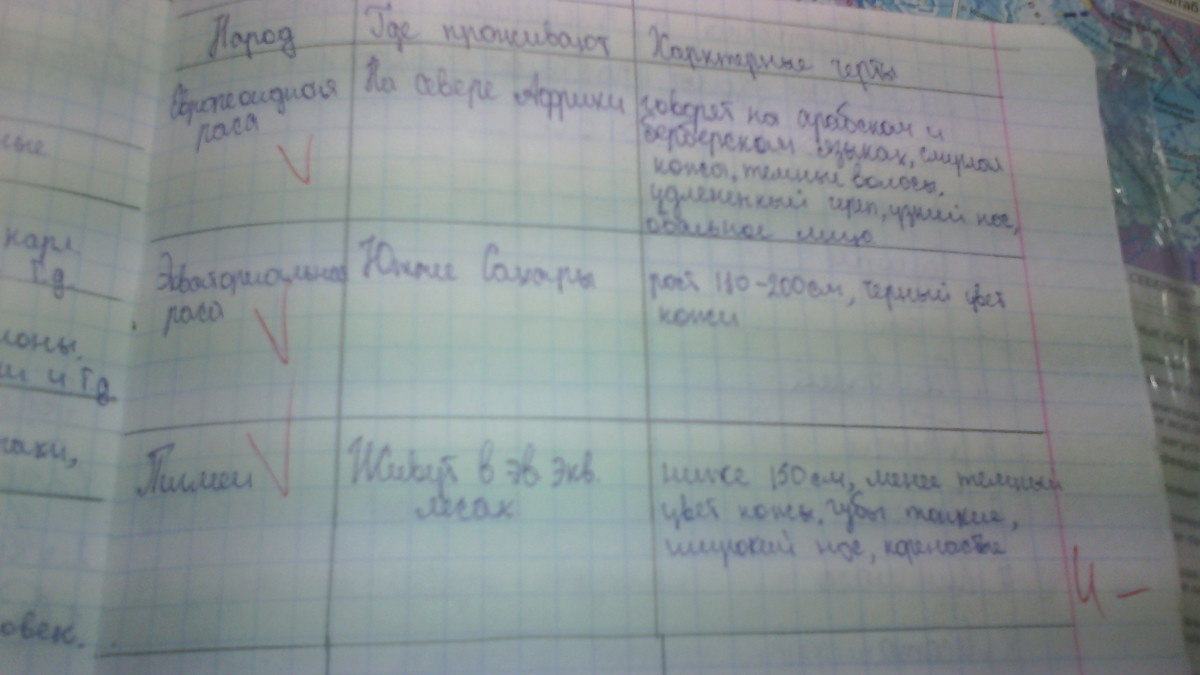 Народ Где проживают Харктерные черты
Европеоидная раса На севере Африки говорят на арабском и
берберском языках, смуглая
кожа, темные волосы.
удлененный череп, узкий нос,
овальное лицо
Экваториальная раса Южнее Сахары рост 180-200см, черный цвет
кожи
Пигмеи Живут в эв экв.
лесах
ниже 150 см, менее темный
цвет кожы. губы тонкие,
широкий нос, коренастые
4 –
карл
т.д.
и т.д.
овек.